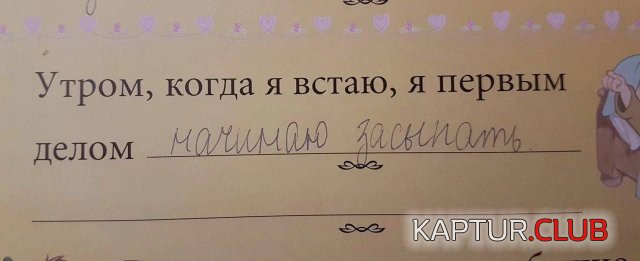 Утром, когда я встаю, я первым
делом начинаю засыпать.
KAPTUR.CLUB